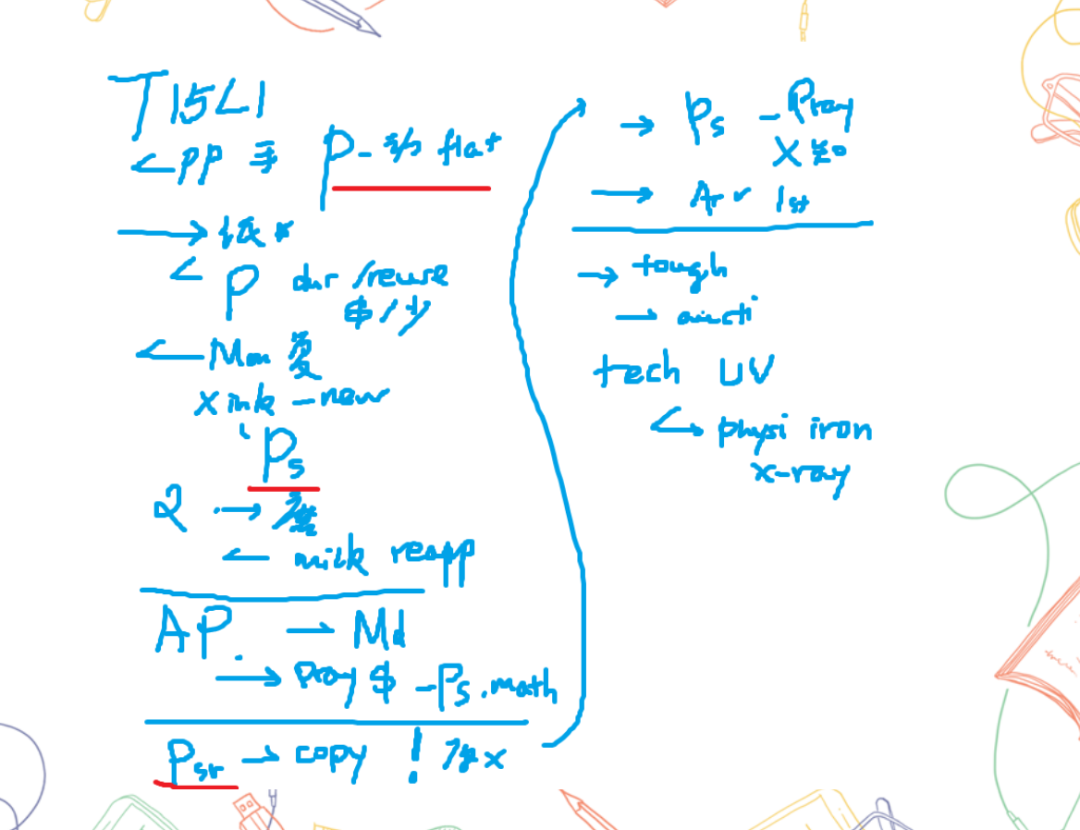 T15L1
<PP 手 P- 动 flat
→ 纸*
< P dur /reuse
$/少
← Man 复
X ink -new
Ps
2 → 磨
← milk reapp
AP. → Md
→ Pray $ -Ps.math
Psr → copy ! 注x
→ Ps - Pray
X 知
→ Ar v 1st
→ tough
→
tech UV
physi iron
x-ray